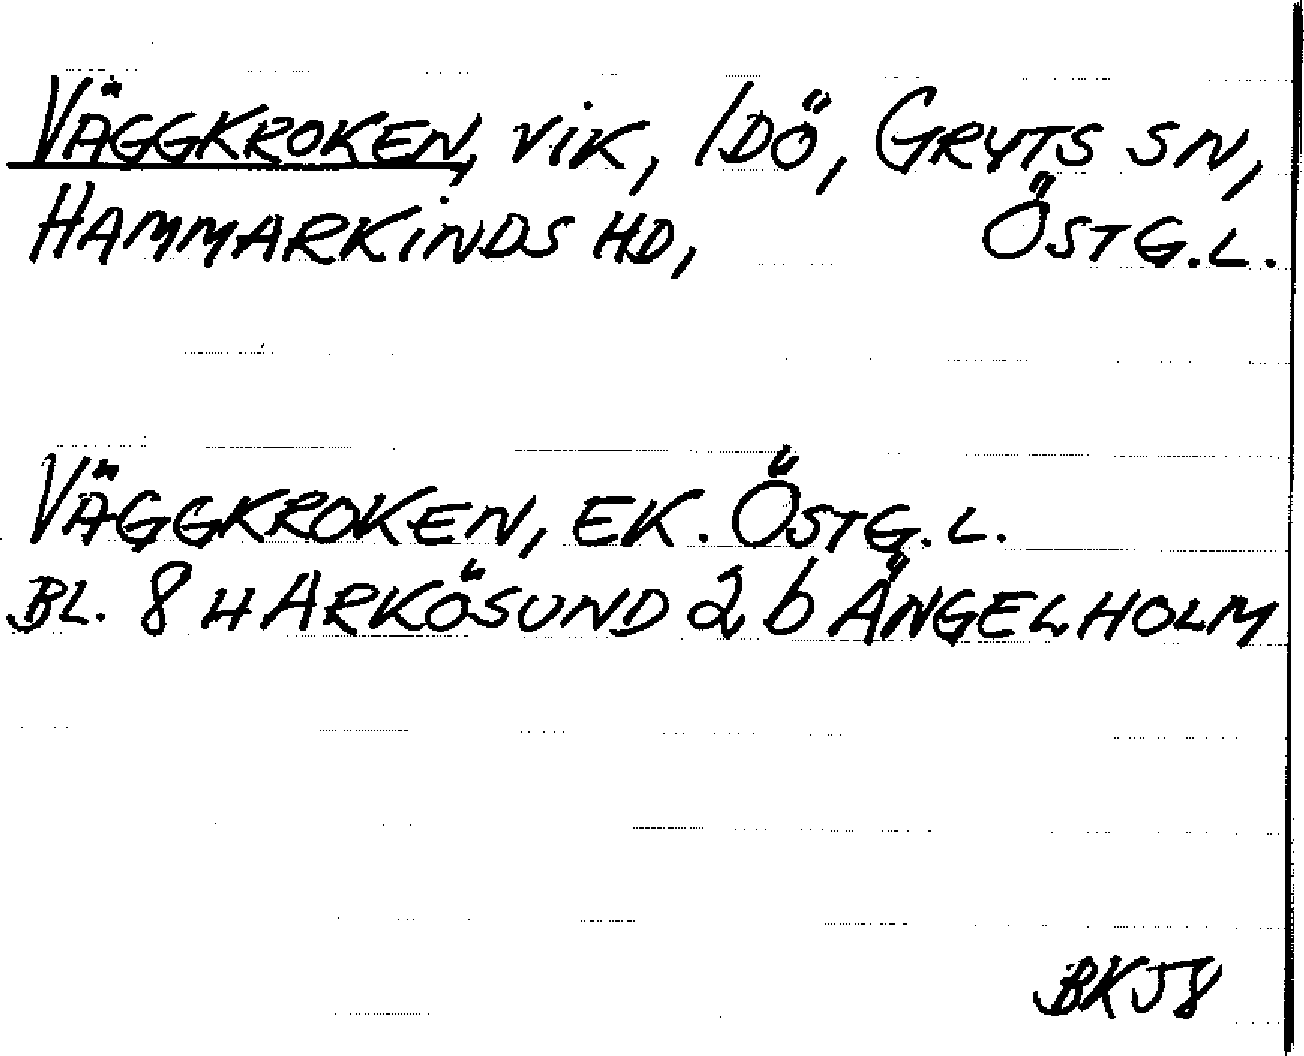 VÄGGKROKEN, VIK, IDÖ, GRYTS SN,
HAMMARKINDS HD, ÖSTG.L.
VÄGGKROKEN, EK. ÖSTG.L.
BL. 8 H ARKÖSUND 2 b ÄNGELHOLM
BKJ8